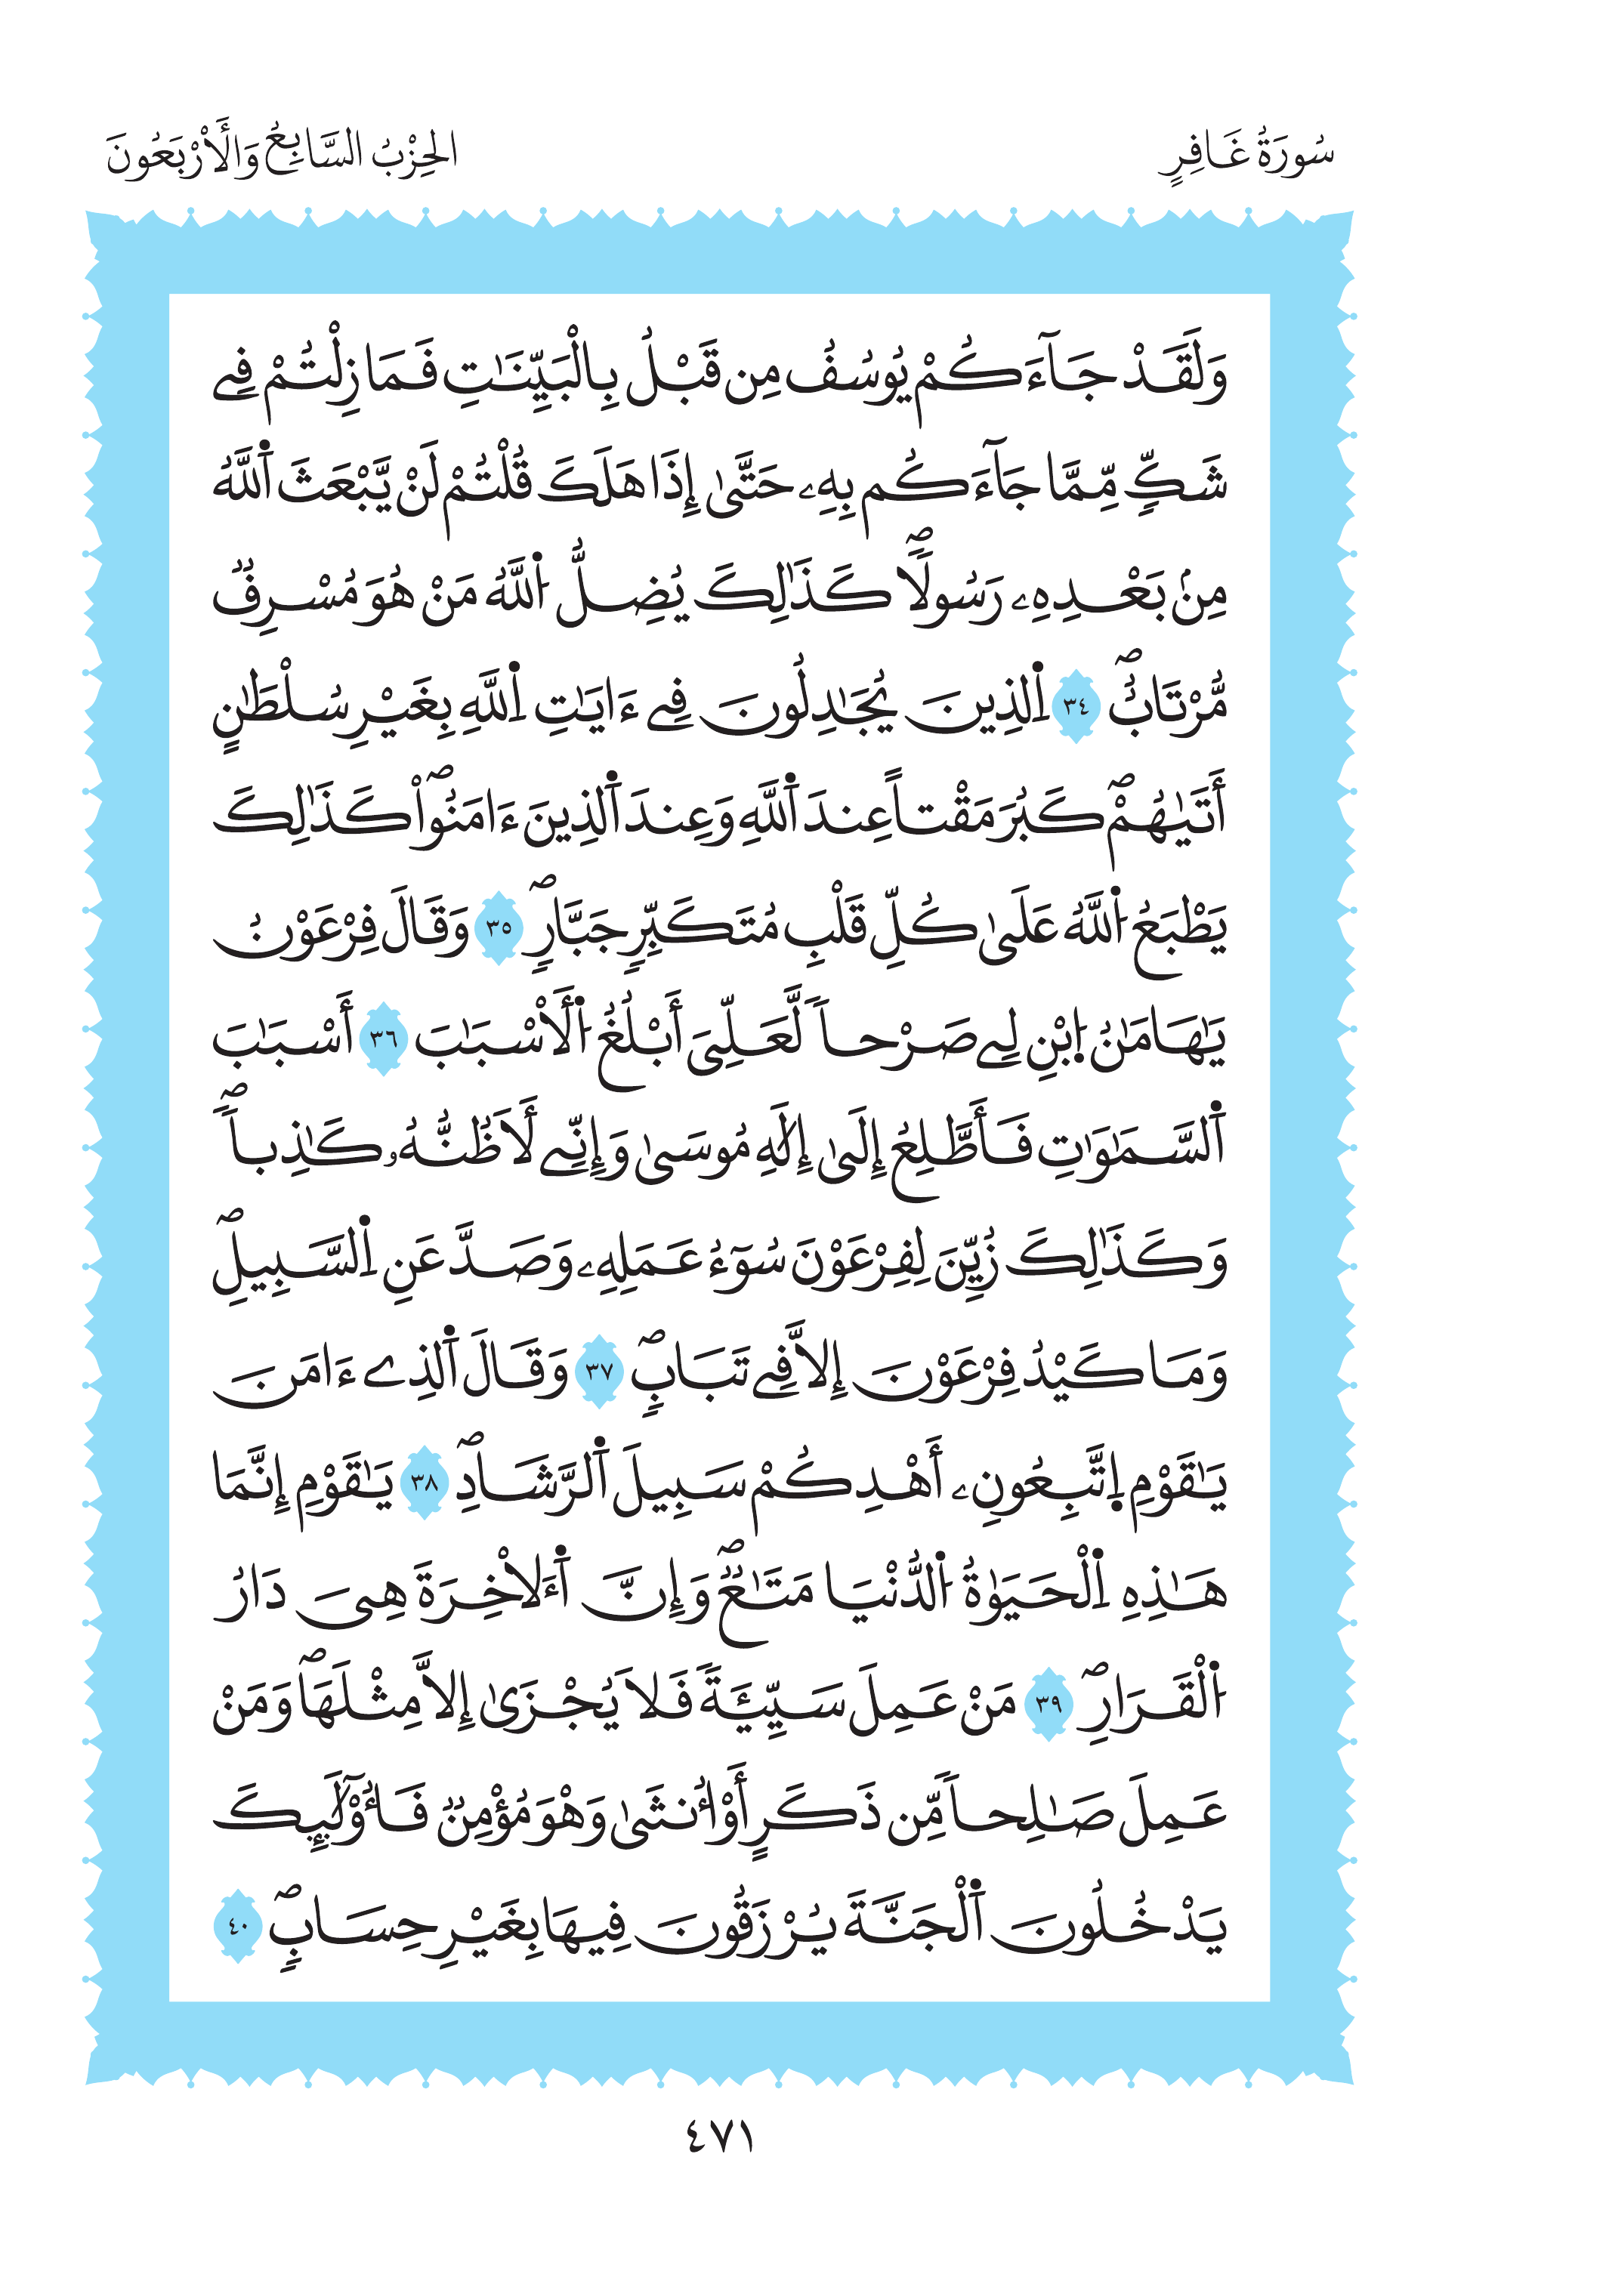 سُورَةُ غَافِرٍ
الحِزْبُ السَّابِعُ وَالأَرْبَعُونَ
وَلَقَدْ جَآءَكُمْ يُوسُفُ مِن قَبْلُ بِالْبَيِّنَٰتِ فَمَا زِلْتُمْ فِے
شَكٍّ مِّمَّا جَآءَكُم بِهِۦ حَتَّىٰ إِذَا هَلَكَ قُلْتُمْ لَنْ يَّبْعَثَ اَ۬للَّهُ
مِنۢ بَعْدِهِۦ رَسُولاًۖ كَذَٰلِكَ يُضِلُّ اُ۬للَّهُ مَنْ هُوَ مُسْرِفٌ
مُّرْتَابٌۖ ٣٤ اِ۬لذِينَ يُجَٰدِلُونَ فِےٓ ءَايَٰتِ اِ۬للَّهِ بِغَيْرِ سُلْطَٰنٍ
أَتَيٰهُمْۖ كَبُرَ مَقْتاً عِندَ اَ۬للَّهِ وَعِندَ اَ۬لذِينَ ءَامَنُواْۖ كَذَٰلِكَ
يَطْبَعُ اُ۬للَّهُ عَلَىٰ كُلِّ قَلْبِ مُتَكَبِّرٍ جَبَّارٍۖ ٣٥ وَقَالَ فِرْعَوْنُ
يَٰهَامَٰنُ اُ۪بْنِ لِے صَرْحاً لَّعَلِّيَ أَبْلُغُ اُ۬لَاسْبَٰبَ ٣٦ أَسْبَٰبَ
اَ۬لسَّمَٰوَٰتِ فَأَطَّلِعُ إِلَىٰ إِلَٰهِ مُوسَىٰ وَإِنِّے لَأَظُنُّهُۥ كَٰذِباًۖ
وَكَذَٰلِكَ زُيِّنَ لِفِرْعَوْنَ سُوٓءُ عَمَلِهِۦ وَصَدَّ عَنِ اِ۬لسَّبِيلِۖ
وَمَا كَيْدُ فِرْعَوْنَ إِلاَّ فِے تَبَابٍۖ ٣٧ وَقَالَ اَ۬لذِے ءَامَنَ
يَٰقَوْمِ اِ۪تَّبِعُونِۦٓ أَهْدِكُمْ سَبِيلَ اَ۬لرَّشَادِۖ ٣٨ يَٰقَوْمِ إِنَّمَا
هَٰذِهِ اِ۬لْحَيَوٰةُ اُ۬لدُّنْيَا مَتَٰعٌۖ وَإِنَّ اَ۬لَاخِرَةَ هِيَ دَارُ
اُ۬لْقَرَارِۖ ٣٩ مَنْ عَمِلَ سَيِّئَةً فَلَا يُجْزَىٰٓ إِلاَّ مِثْلَهَاۖ وَمَنْ
عَمِلَ صَٰلِحاً مِّن ذَكَرٍ أَوُ ا۟نثَىٰ وَهْوَ مُؤْمِنٌ فَأُوْلَٰٓئِكَ
يَدْخُلُونَ اَ۬لْجَنَّةَ يُرْزَقُونَ فِيهَا بِغَيْرِ حِسَابٍۖ ٤٠
٤٧١